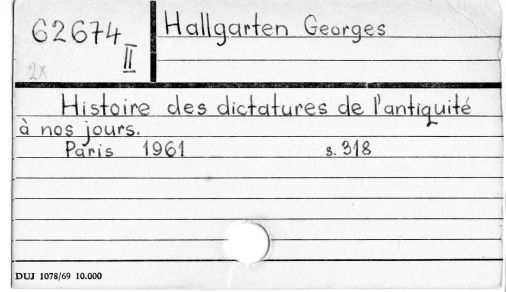 62674 Hallgarten Georges
II
2x
Histoire des dictatures de l'antiquité
à nos jours.
Paris 1961 s. 318
DUJ 1078/69 10.000